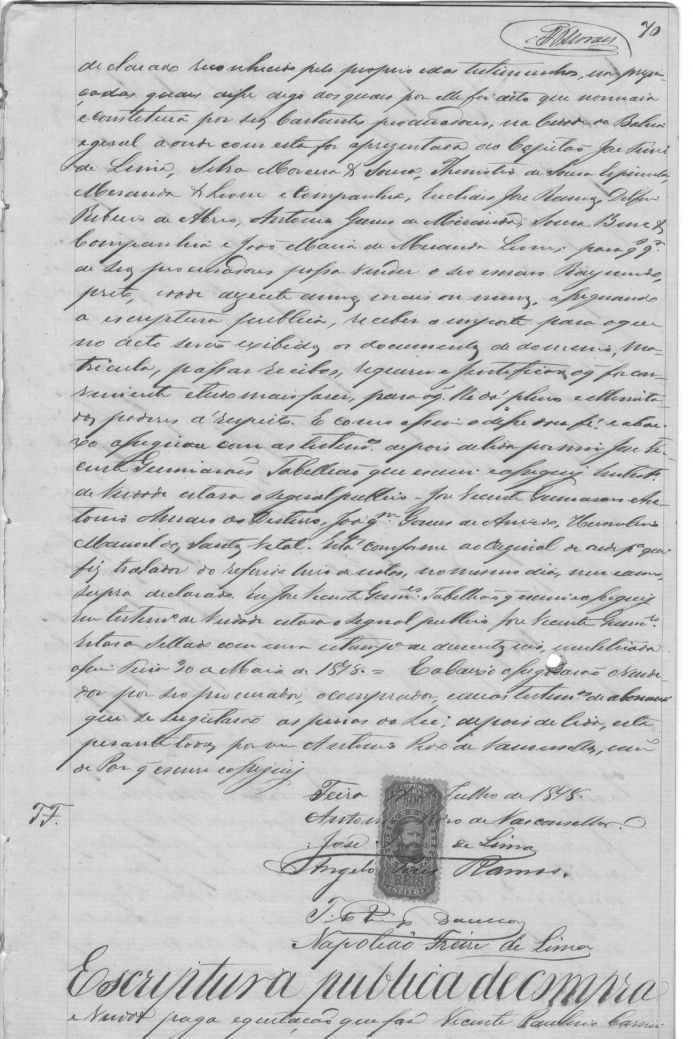 70
declarado reconhecido pelo proprio e das testimunhas, na prezen
ça das quais disse digo dos quais por elle foi dito que nomeia
e constituia por seus bastantes procuradores, na Cidade da Bahia
e geral aonde com esta for aprezentada ao Capitão José Freire
de Lima, Silva Moreira & Souza, Themistio de Souza Espinola,
Meranda & Leone e Companhia, Euclides José Ramos, Delfim
Ribeiro de Abreo, Antonio Gomes de Miranda, Souza &
Companhia e João Maria de Meranda Leone; para q. q.
de seus procuradores possa vender o seo escravo Raymundo,
preto, idade dezecete annos mais ou menos, assignando
a escriptura publica, receber o importe para o que
no acto serão exibidos os documentos de dominio, ma
tricula, passar recibos, requerer e justificar o q. for con
viniente e tudo mais fazer, para o q. lhe dá plenos e illimita
dos poderes á respeito. E como assim o disse dou fé e abai
xo assignou com as testem.as depois de lida por mim José Vi
cente Guimarães Tabellião que escrevi e assignei. Em test.o
de verdade estava o signal publico - José Vicente Guimarães An
tonio do Desterro, Joaq.m Gomes de Azevedo, Herculano
Manoel dos Santos Vital. Está conforme ao original de onde p.a aqui
fiz tralador do referido livro de notas, no mesmo dia, mez e anno
supra declarado. Eu José Vicente Guim.es Tabellião q. escrevi e assignei
Em testem.o de verdade estava o signal publico José Vicente Guim.es
Estava sellado com uma estampi.a de duzentos reis, inutilizada
assim Feira 20 de Maio de 1878. = E abaixo assignarão o vende
dor por seo procurador, o comprador, e duas testem.as
que se sugeitarão as penas da Lei; depois de lida, esta
perante todos por mim Antonio Roiz de Vasconsellos, escrivão
de Paz q. escrevi e assignei
Feira Julho de 1878.
Antonio de Vasconsellos.
José de Lima
Angelo Ramos.
T. F.
Napoleão Freire de Lima
Escriptura publica de compra
e venda paga e quitação que faz Vicente Paulino